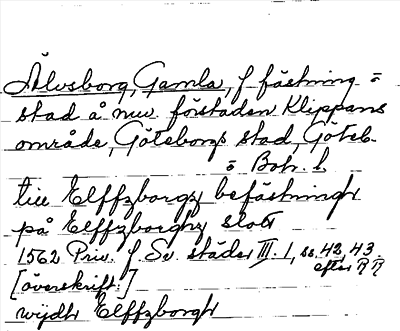 Älvsborg, Gamla, f fästning o
stad å nuv. förstaden Klippans
område, Göteborgs stad, Göteb.
o Boh. l.
till Elffzborgz befästningh
på Elffzborghz slott
1562 Priv. f Sv. städer III. 1, ss. 42, 43
efter RR
[överskrift:]
wijdh Elffzborgh